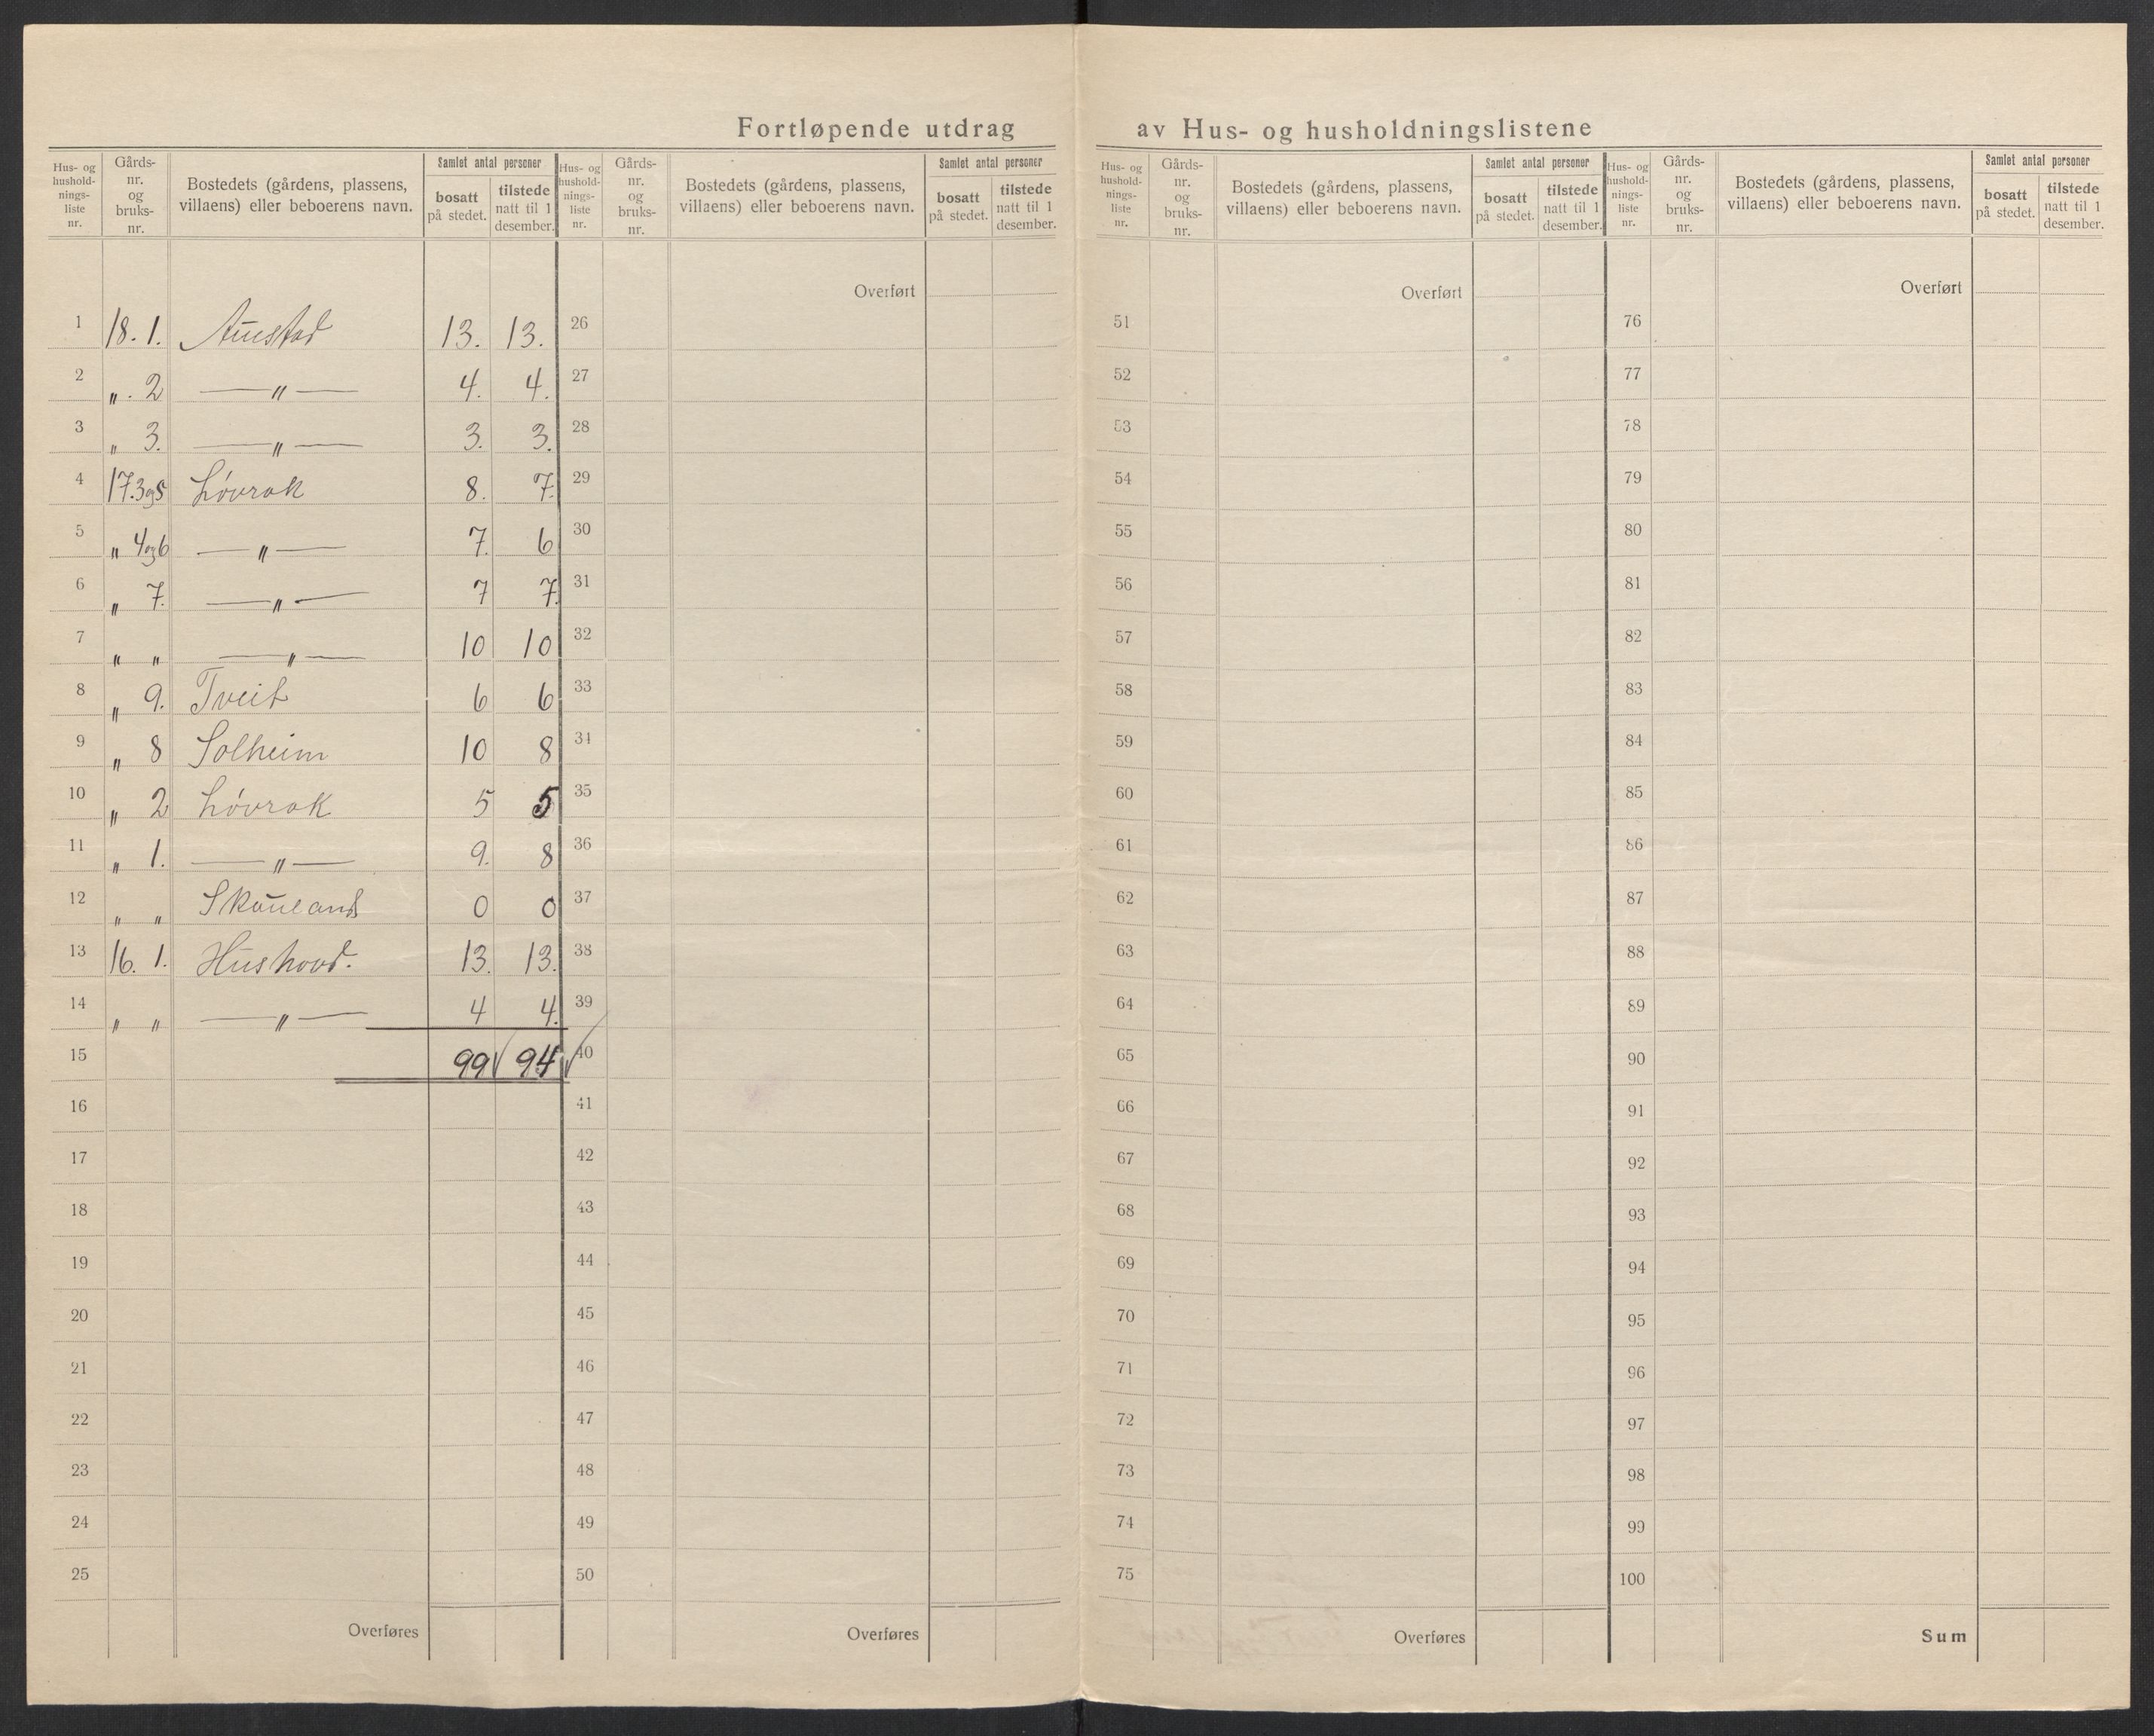 Fortløpende utdrag av Hus- og husholdningslistene
Hus- og hushold-nings-liste nr. | Gårds-nr. og bruks-nr. | Bostedets (gårdens, plassens, villaens) eller beboerens navn. | Samlet antal personer | bosatt på stedet. | tilstede natt til 1 desember.
1 18. 1. Austad 13. 13.
2 „ . 2 — „ — 4. 4.
3 „ 3. — „ — 3. 3.
4 17. 3 og 5 Løvrak 8. 7.
5 „ 4 og 6 — „ — 7. 6
6 „ 7. — „ — 7 7.
7 „ „ — „ — 10 10
8 „ 9. Tveit 6 6
9 „ 8 Solheim 10 8
10 „ 2 Løvrak 5 5
11 „ 1. — „ — 9. 8
12 „ „ Skauland 0 0
13 16. 1. Hushovd. 13. 13.
14 „ „ — „ — 4 4.
15 99 94
16
17
18
19
20
21
22
23
24
25
Overføres
Hus- og hushold-nings-liste nr. | Gårds-nr. og bruks-nr. | Bostedets (gårdens, plassens, villaens) eller beboerens navn. | Samlet antal personer | bosatt på stedet. | tilstede natt til 1 desember.
Overført
26
27
28
29
30
31
32
33
34
35
36
37
38
39
40
41
42
43
44
45
46
47
48
49
50
Overføres
Hus- og hushold-nings-liste nr. | Gårds-nr. og bruks-nr. | Bostedets (gårdens, plassens, villaens) eller beboerens navn. | Samlet antal personer | bosatt på stedet. | tilstede natt til 1 desember.
Overført
51
52
53
54
55
56
57
58
59
60
61
62
63
64
65
66
67
68
69
70
71
72
73
74
75
Overføres
Hus- og hushold-nings-liste nr. | Gårds-nr. og bruks-nr. | Bostedets (gårdens, plassens, villaens) eller beboerens navn. | Samlet antal personer | bosatt på stedet. | tilstede natt til 1 desember.
Overført
76
77
78
79
80
81
82
83
84
85
86
87
88
89
90
91
92
93
94
95
96
97
98
99
100
Sum